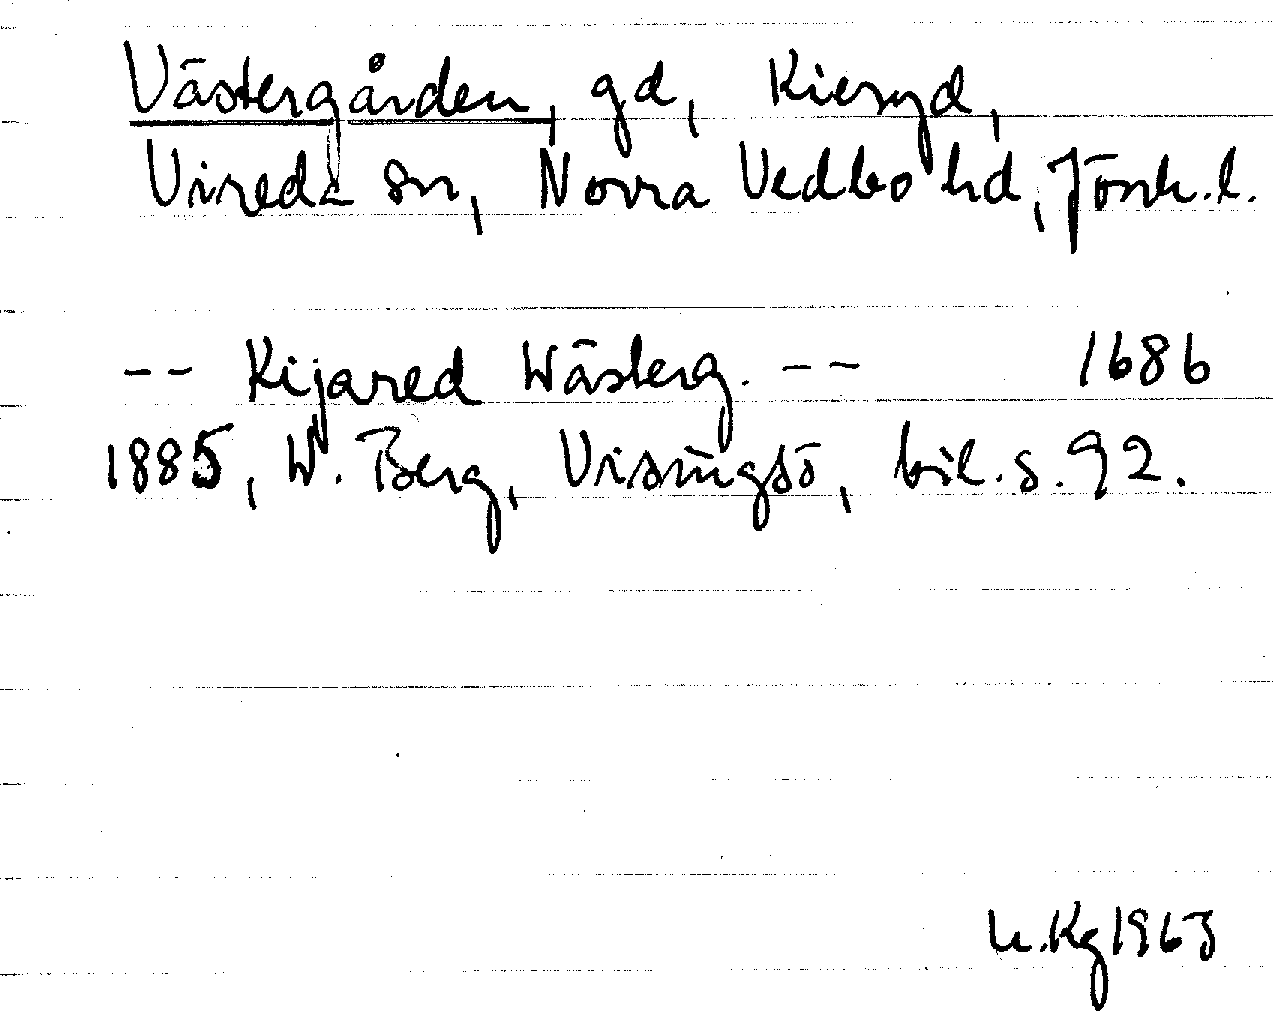 Västergården, gd, Kieryd,
Vireda sn, Norra Vedbo hd, Jönk.l.
-- Kijared Wästerg. -- 1686
1885, W. Berg, Visingsö, bil. s. 92.
1963